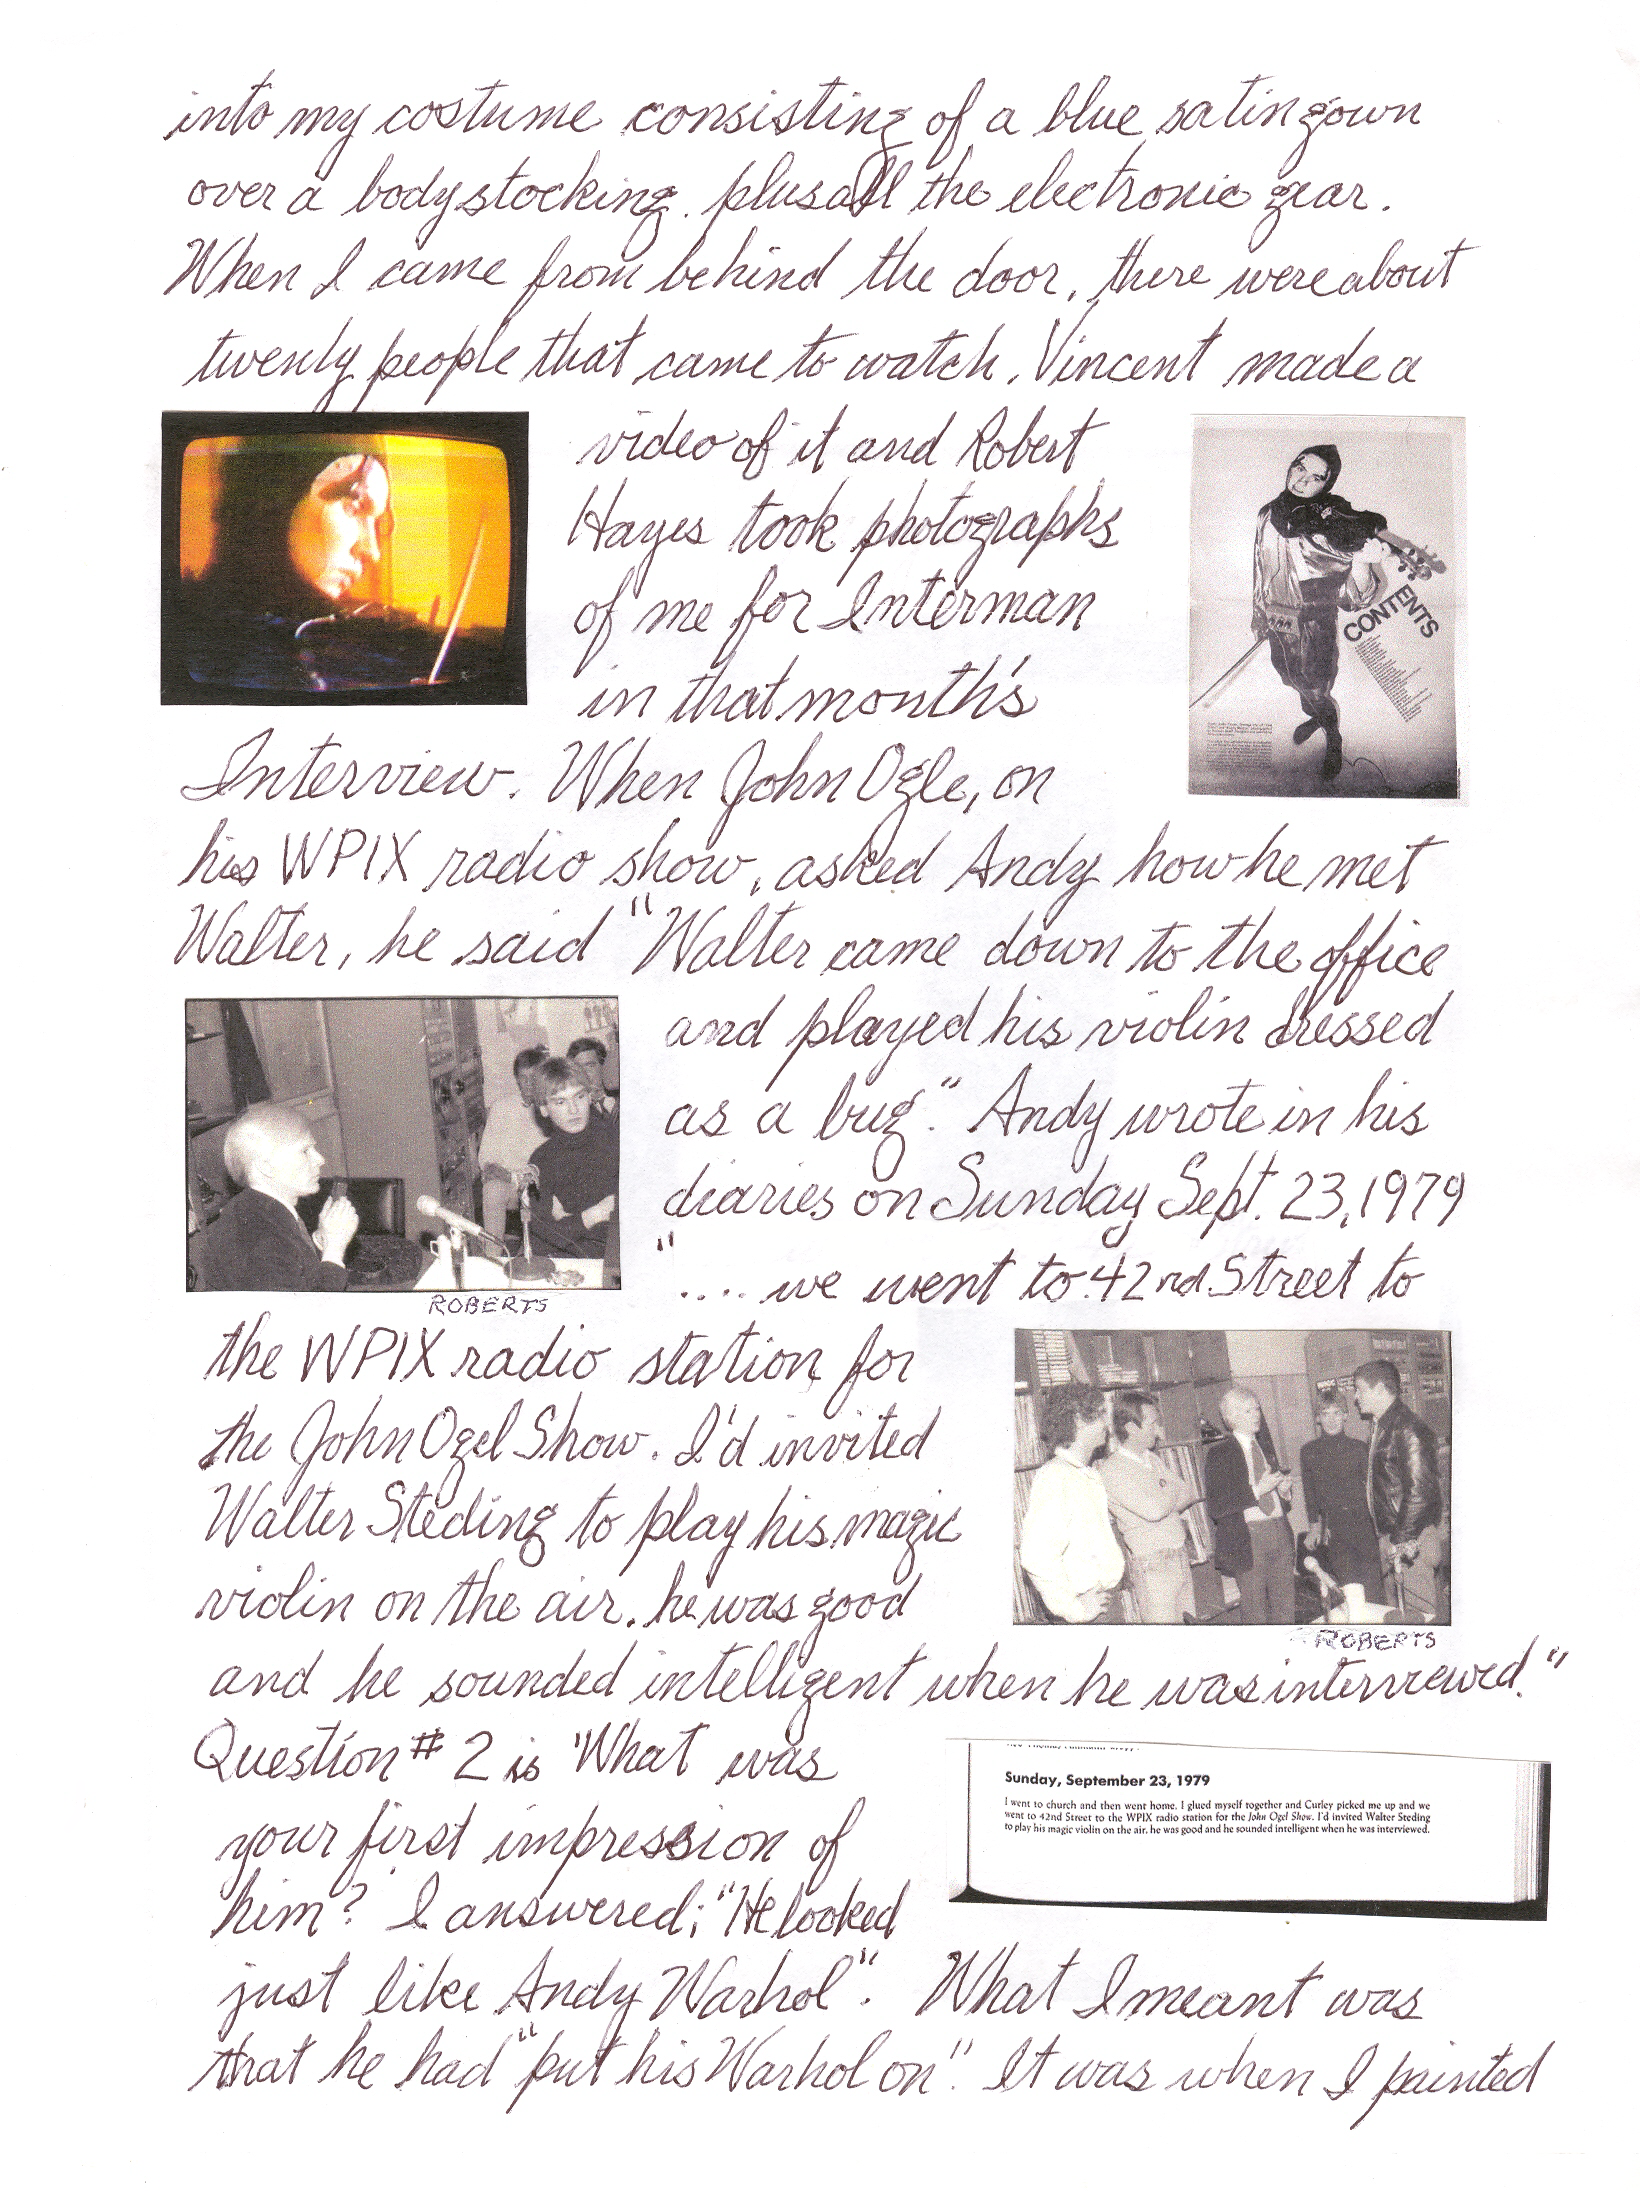 into my costume consisting of a blue satin gown
over a bodystocking. plus all the electronic gear.
When I came from behind the door, there were about
twenty people that came to watch. Vincent made a
video of it and Robert
Hayes took photographs
of me for Interman
in that month's
CONTENTS
Interview. When John Ogle, on
his WPIX radio show, asked Andy how he met
Walter, he said "Walter came down to the office
and played his violin dressed
as a bug." Andy wrote in his
diaries on Sunday Sept. 23, 1979
".... we went to 42nd Street to
ROBERTS
the WPIX radio station for
the John Ogel Show. I'd invited
Walter Steding to play his magic
violin on the air. he was good
ROBERTS
and he sounded intelligent when he was interviewed."
Question # 2 is "What was
your first impression of
him? I answered; "He looked
Sunday, September 23, 1979
I went to church and then went home. I glued myself together and Curley picked me up and we
went to 42nd Street to the WPIX radio station for the John Ogel Show. I'd invited Walter Steding
to play his magic violin on the air. he was good and he sounded intelligent when he was interviewed.
just like Andy Warhol". What I meant was
that he had "put his Warhol on". It was when I painted